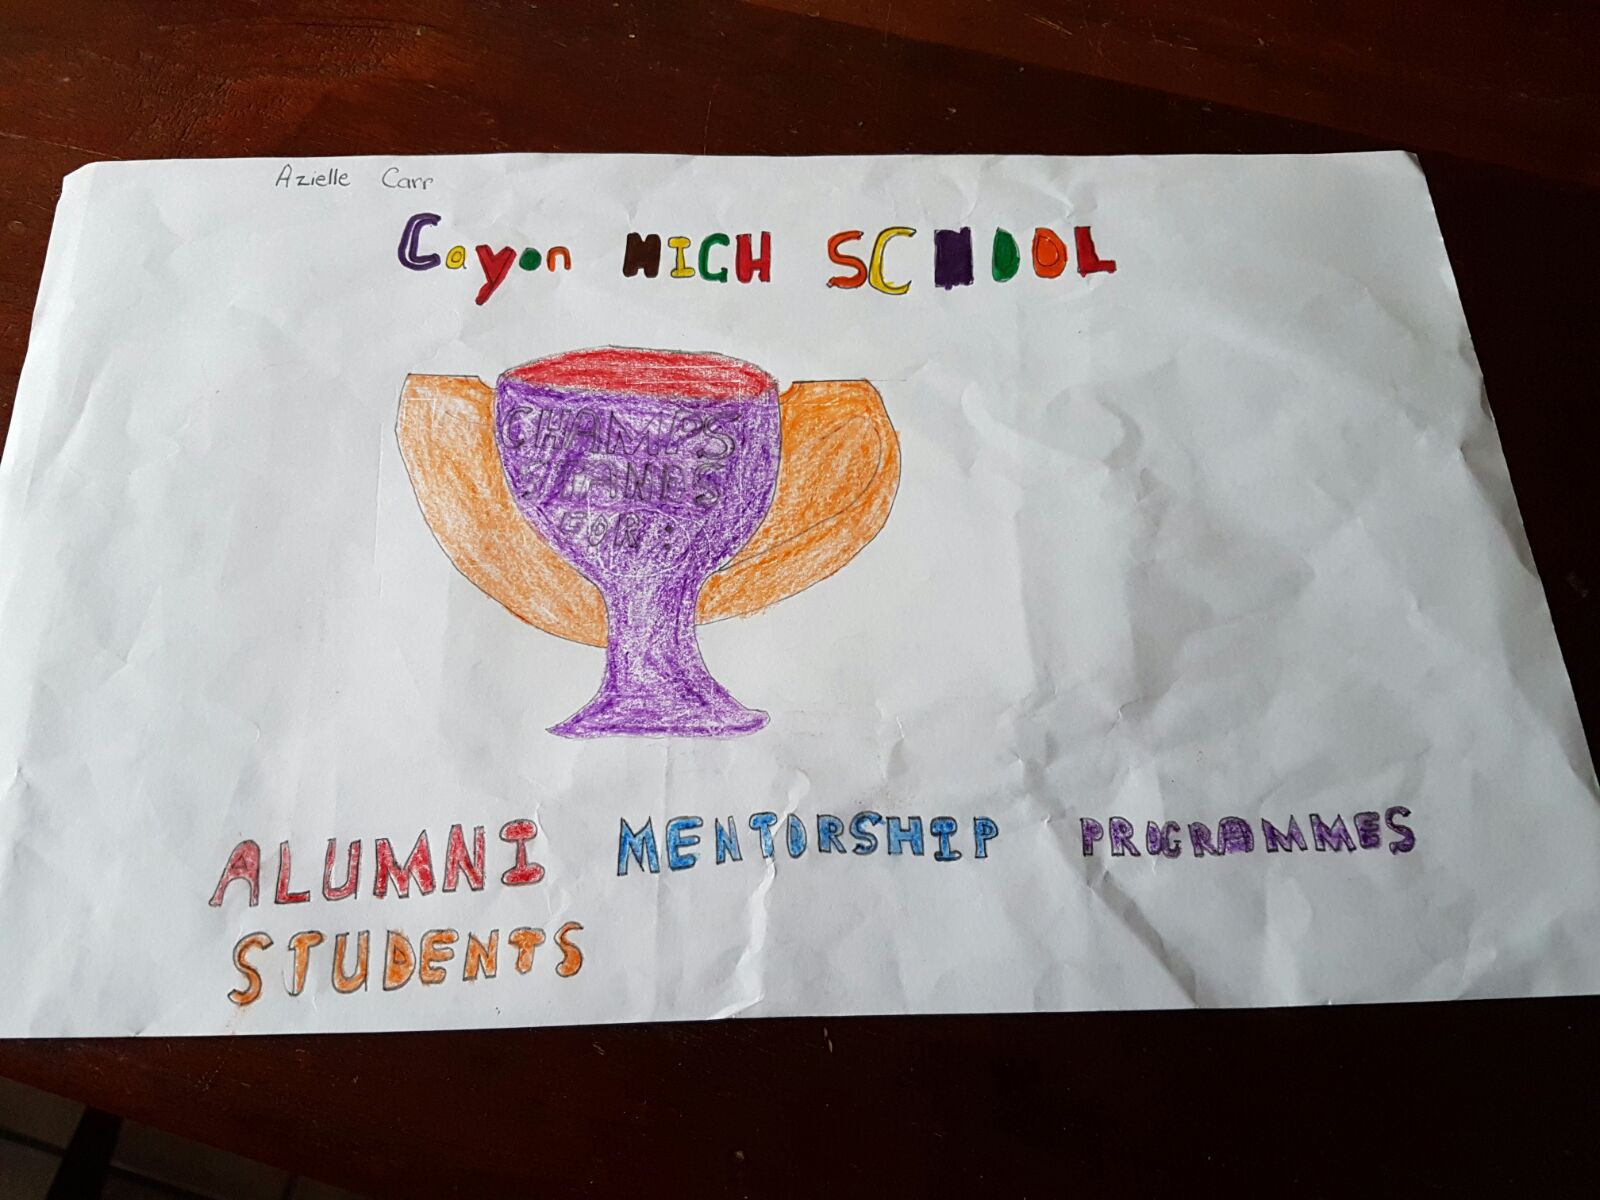 Azielle Carr
Cayon HIGH SCHOOL
CHAMPS
STANDS
FOR:
ALUMNI MENTORSHIP PROGRAMMES
STUDENTS